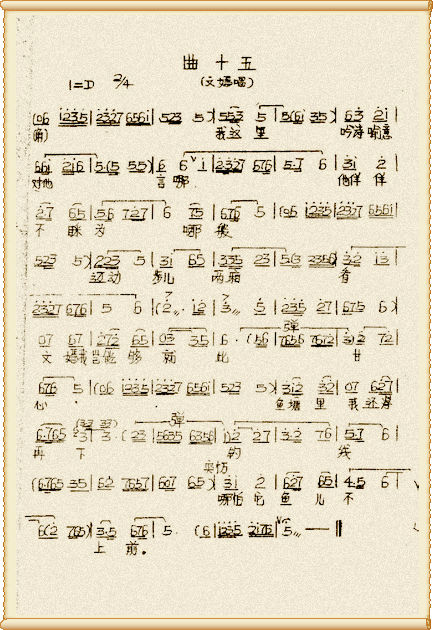 曲十五
1=D 2/4 (文嫣唱)
(06 1235 | 2327 6561 | 523 5) | 553 5 | 5(61 35) | 63 21 |
我这里 吟诗喻意
661 216 | 5(5 55) | 6 6 1 | 2327 676 | 5·7 6 | 31 2 |
对他 言哪 他佯佯
27 65 | 56 727 | 6 75 | 676 5 | (06 1235 | 2327 6561 |
不睬为 哪般
523 5) | 223 5 | 31 65 | 335 23 | 5(3 2356) | 32 13 |
动步儿 两厢 看
2327 676 | 5 6 | (7·· 12 | 3·· 5 | 235 27 | 675 6) |
弹
07 67 | 272 65 | 03 35 | 6· (56 | 7656 7672 | 3)2 72 |
文嫣我岂能够就此 甘
676 5 | (06 1235 | 2327 6561 | 523 5) | 312 32 | 07 627 |
心 鱼塘里我还得
弹
6·765 3 3· (23 | 5635 6356 | 1)2 27 | 3·2 76 | 5·7 6 |
再下 钓 线
(6765 35 | 62 7657 | 607 65) | 31 2 | 627 65 | 4·5 6 |
哪怕它鱼儿不
6(2 765) | 3·5 676 | 5· (6 | 1235 2176 | 5·· — ‖
上前。